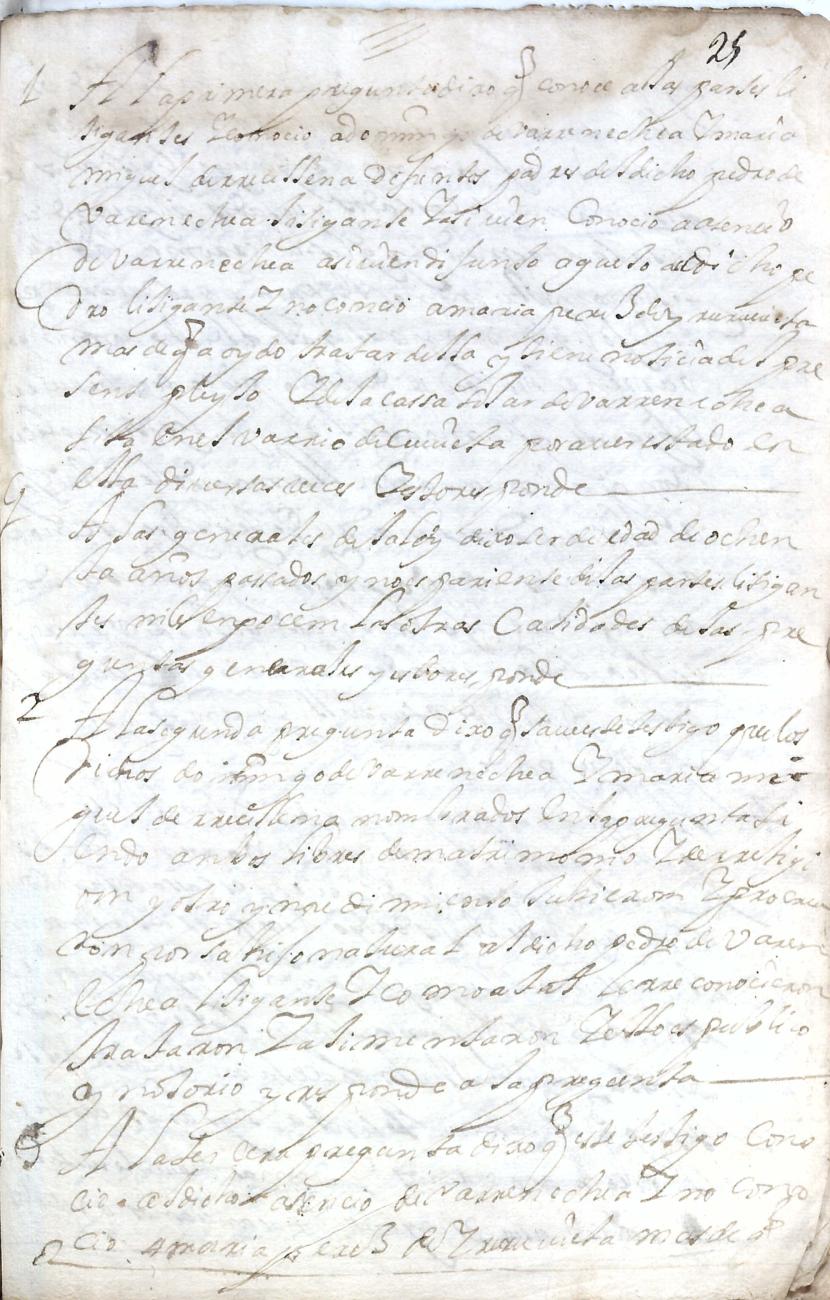 25
1 A la primera pregunta dixo q conoce a las partes li
tigantes Y conocio a domingo de varrenechea Y maria
miguel de rrecillena defuntos padres del dicho pedro de
varenechea litigante Y asi vien conocio a asencio
de varrenechea asi vien difunto aguelo del dicho pe
dro litigante Y no conocio a maria perez de
mas de q a oydo tratar della y tiene noticia del pre
sente pleyto Y de la cassa solar de varrenechea
sita en el varrio de por aver estado en
ella diversas veces Y esto responde
g A las generales de la ley dixo ser de edad de ochen
ta años passados y no es pariente de las partes litigan
tes ni le enpecen las otras calidades de las pre
guntas generales y esto responde
2 A la segunda pregunta dixo q save este testigo que los
dichos domingo de varrenechea Y maria mi
guel de rrecillena nombrados en la pregunta si
endo anbos libres de matrimonio Y de rreligi
on y otro ynpedimiento tubieron Y procrea
ron por su hijo natural al dicho pedro de varen
echea litigante Y como a tal le rreconocieron
trataron Y alimentaron Y esto es publico
y notorio y responde a la pregunta
3 A la tercera pregunta dixo q este testigo cono
cio al dicho asencio de varrenechea Y no cono
cio a maria perez de mas de q